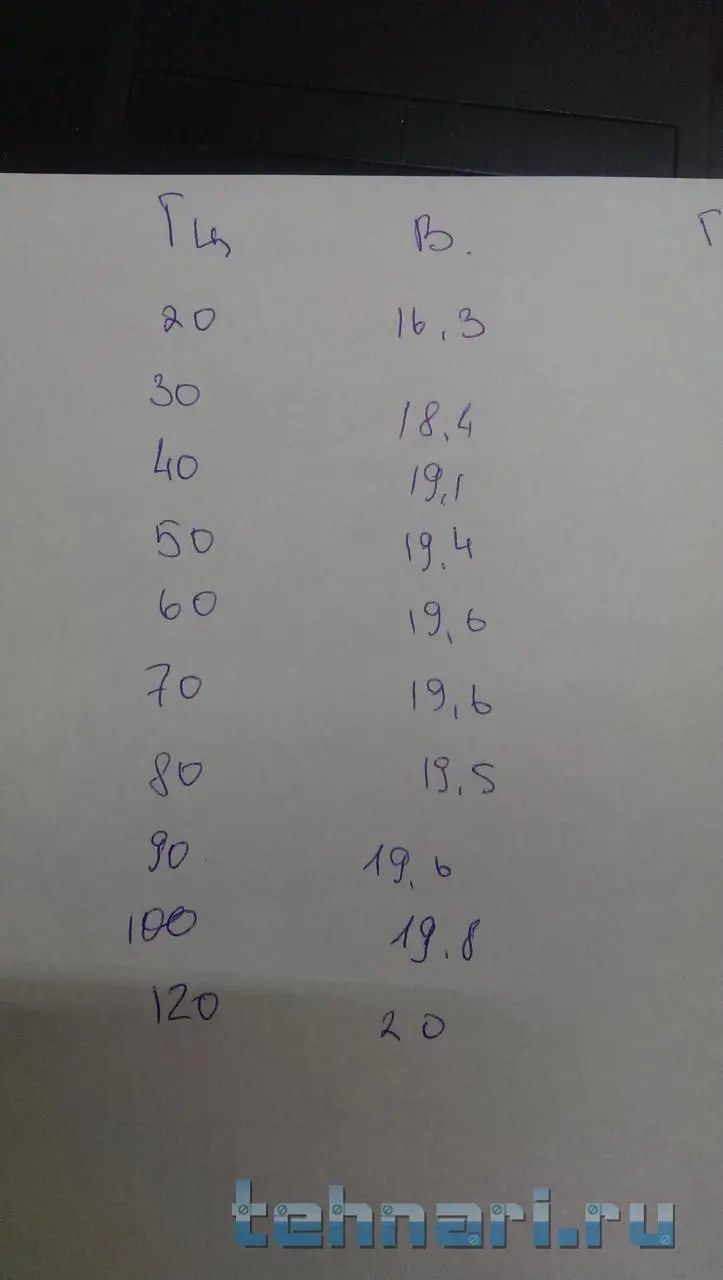 Гц В. Г
20 16.3
30 18.4
40 19,1
50 19.4
60 19,6
70 19,6
80 19.5
90 19.6
100 19.8
120 20
tehnari.ru